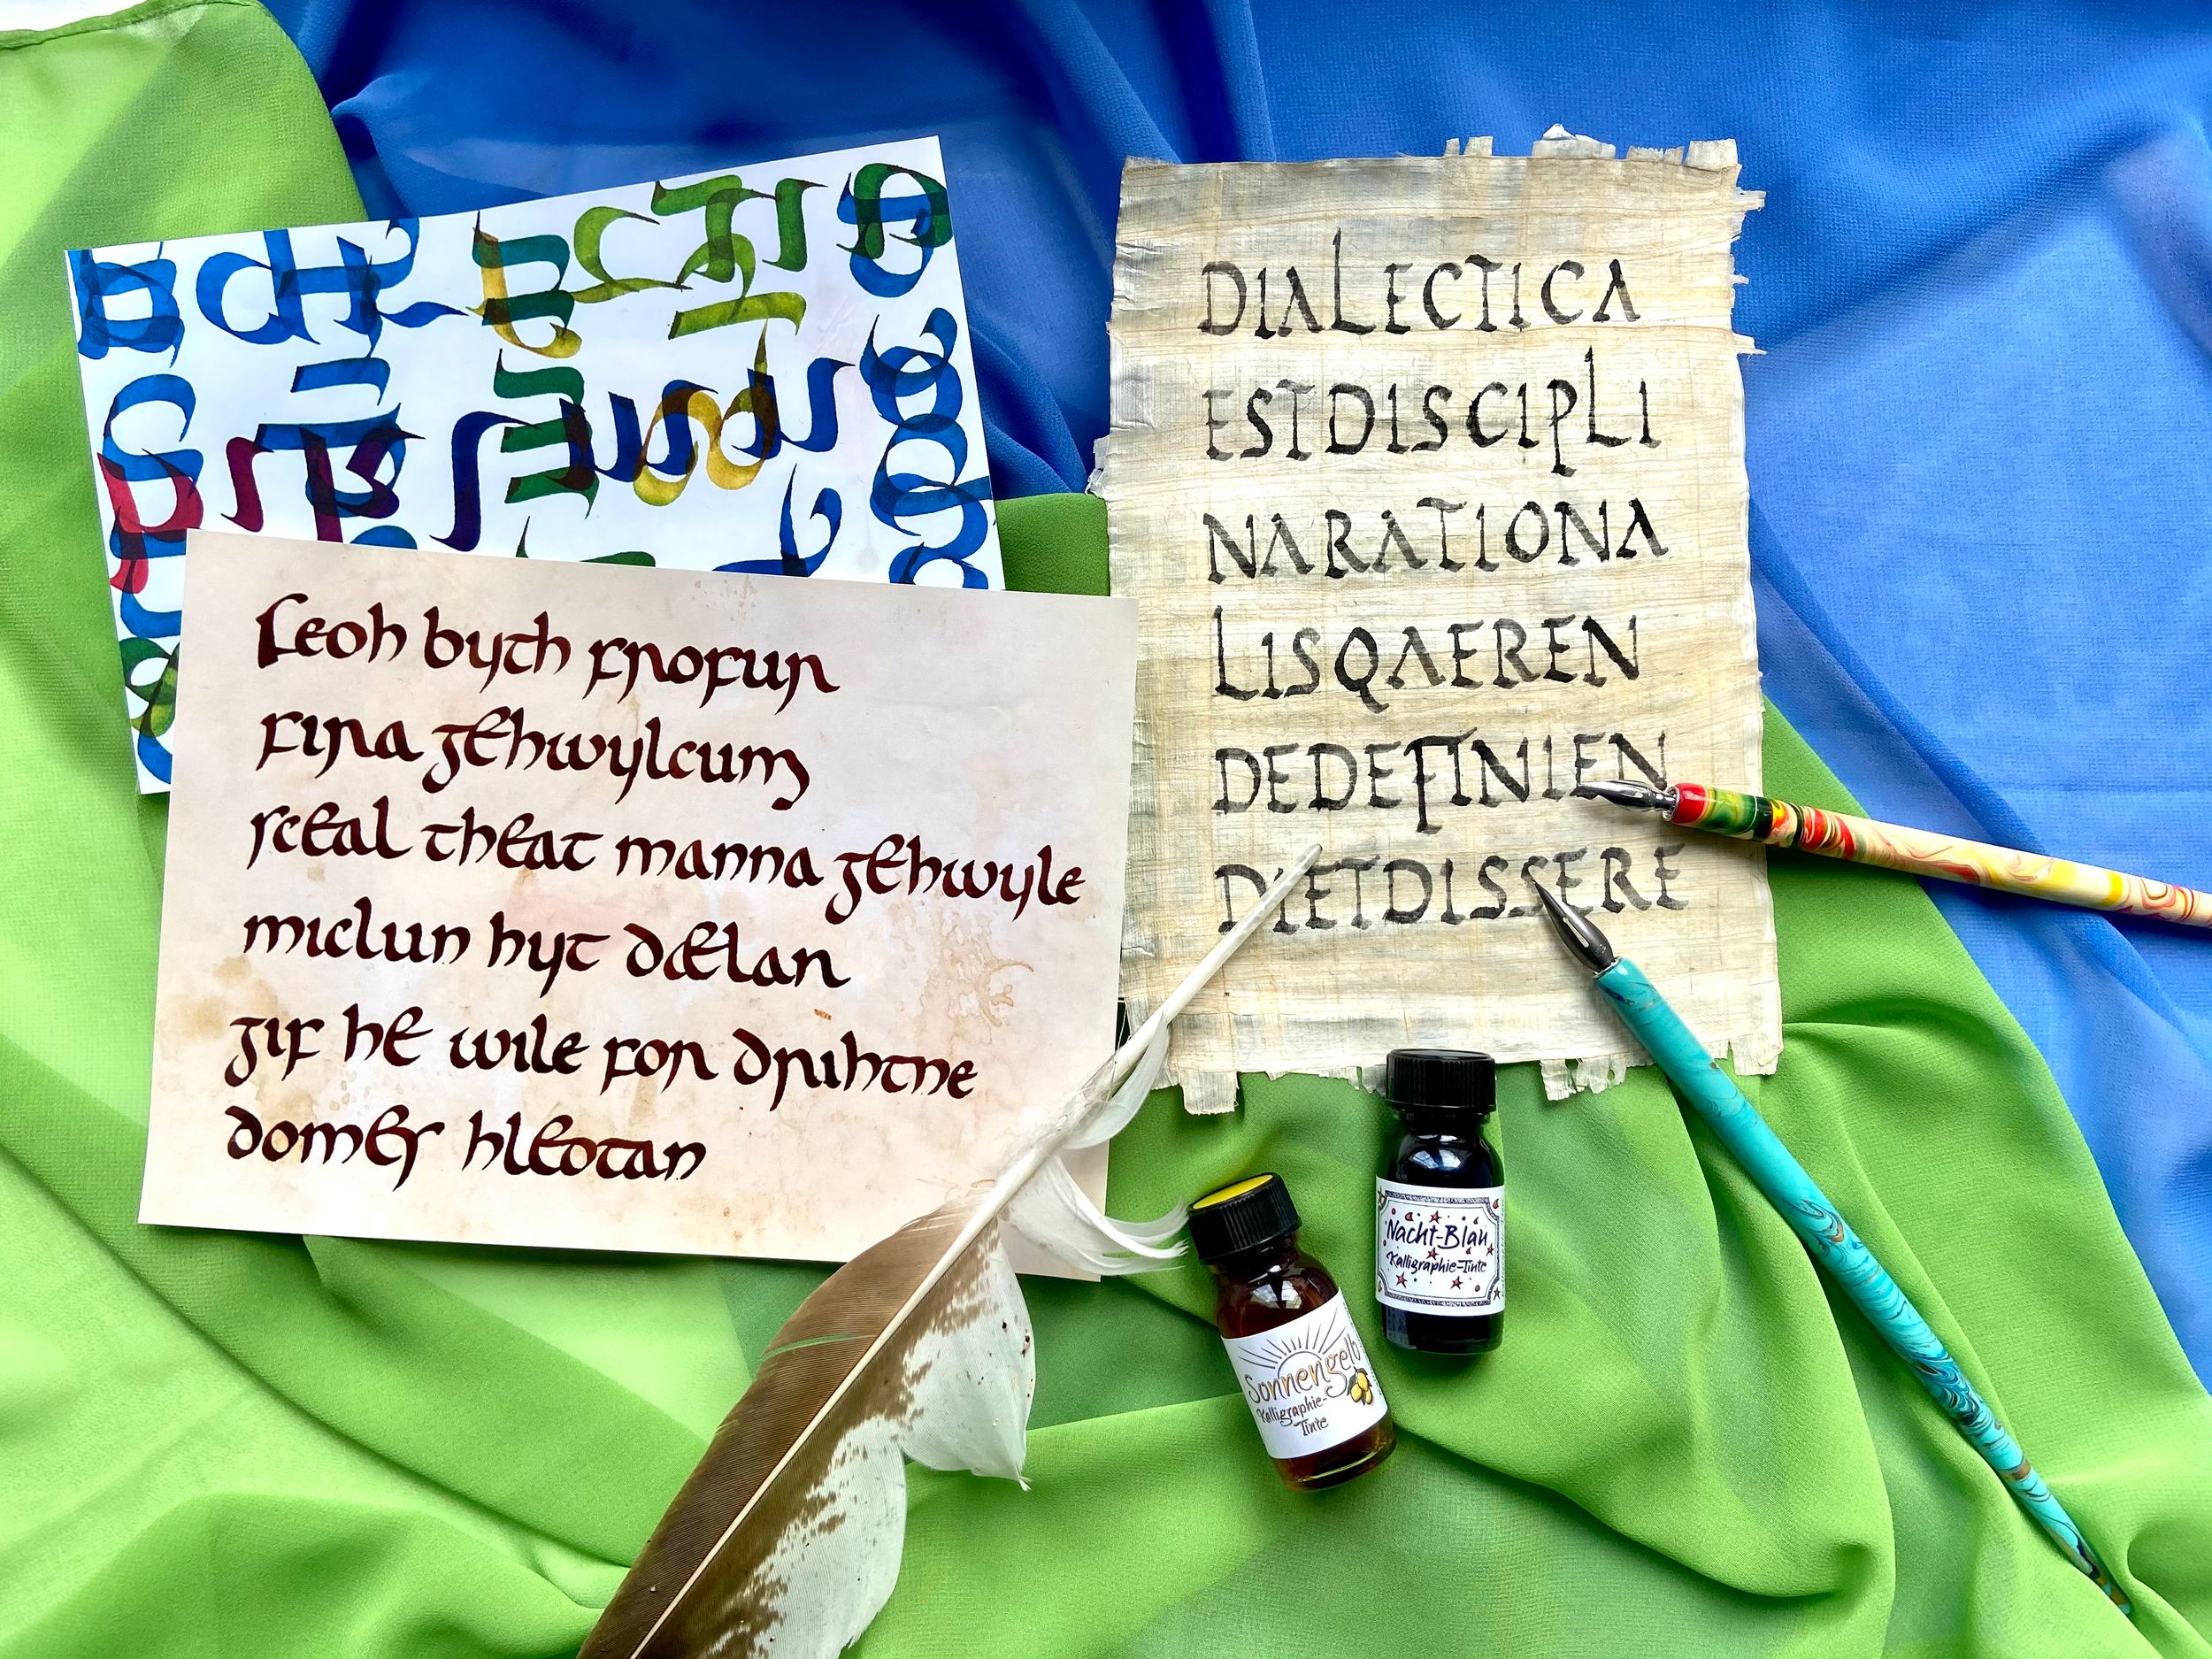 feoh byth frofur
fira gehwylcum
sceal theat manna gehwyle
miclun hyt dælan
gif he wile for drihtne
domes hleotan
DIALECTICA
ESTDISCIPLI
NARATIONA
LISQAEREN
DEDEFINIEN
DIETDISSERE
Nacht-Blau
Kalligraphie-Tinte
Sonnengelb
Kalligraphie-
Tinte